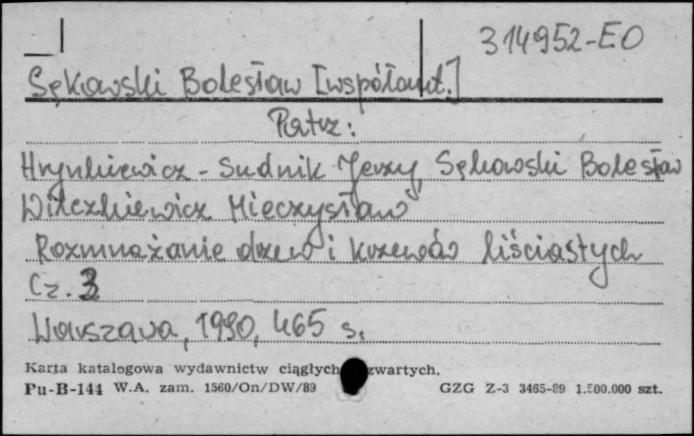 314952-EO
Sękowski Bolesław [współaut.]
Patrz:
Hrynkiewicz - Sudnik Jerzy, Sękowski Bolesław
Wilczkiewicz Mieczysław
Rozmnażanie drzew i krzewów liściastych
Cz. 3
Warszawa, 1990, 465 s.
Karta katalogowa wydawnictw ciągłych zwartych.
Pu-B-144 W.A. zam. 1560/On/DW/89 GZG Z-3 3465-89 1.500.000 szt.